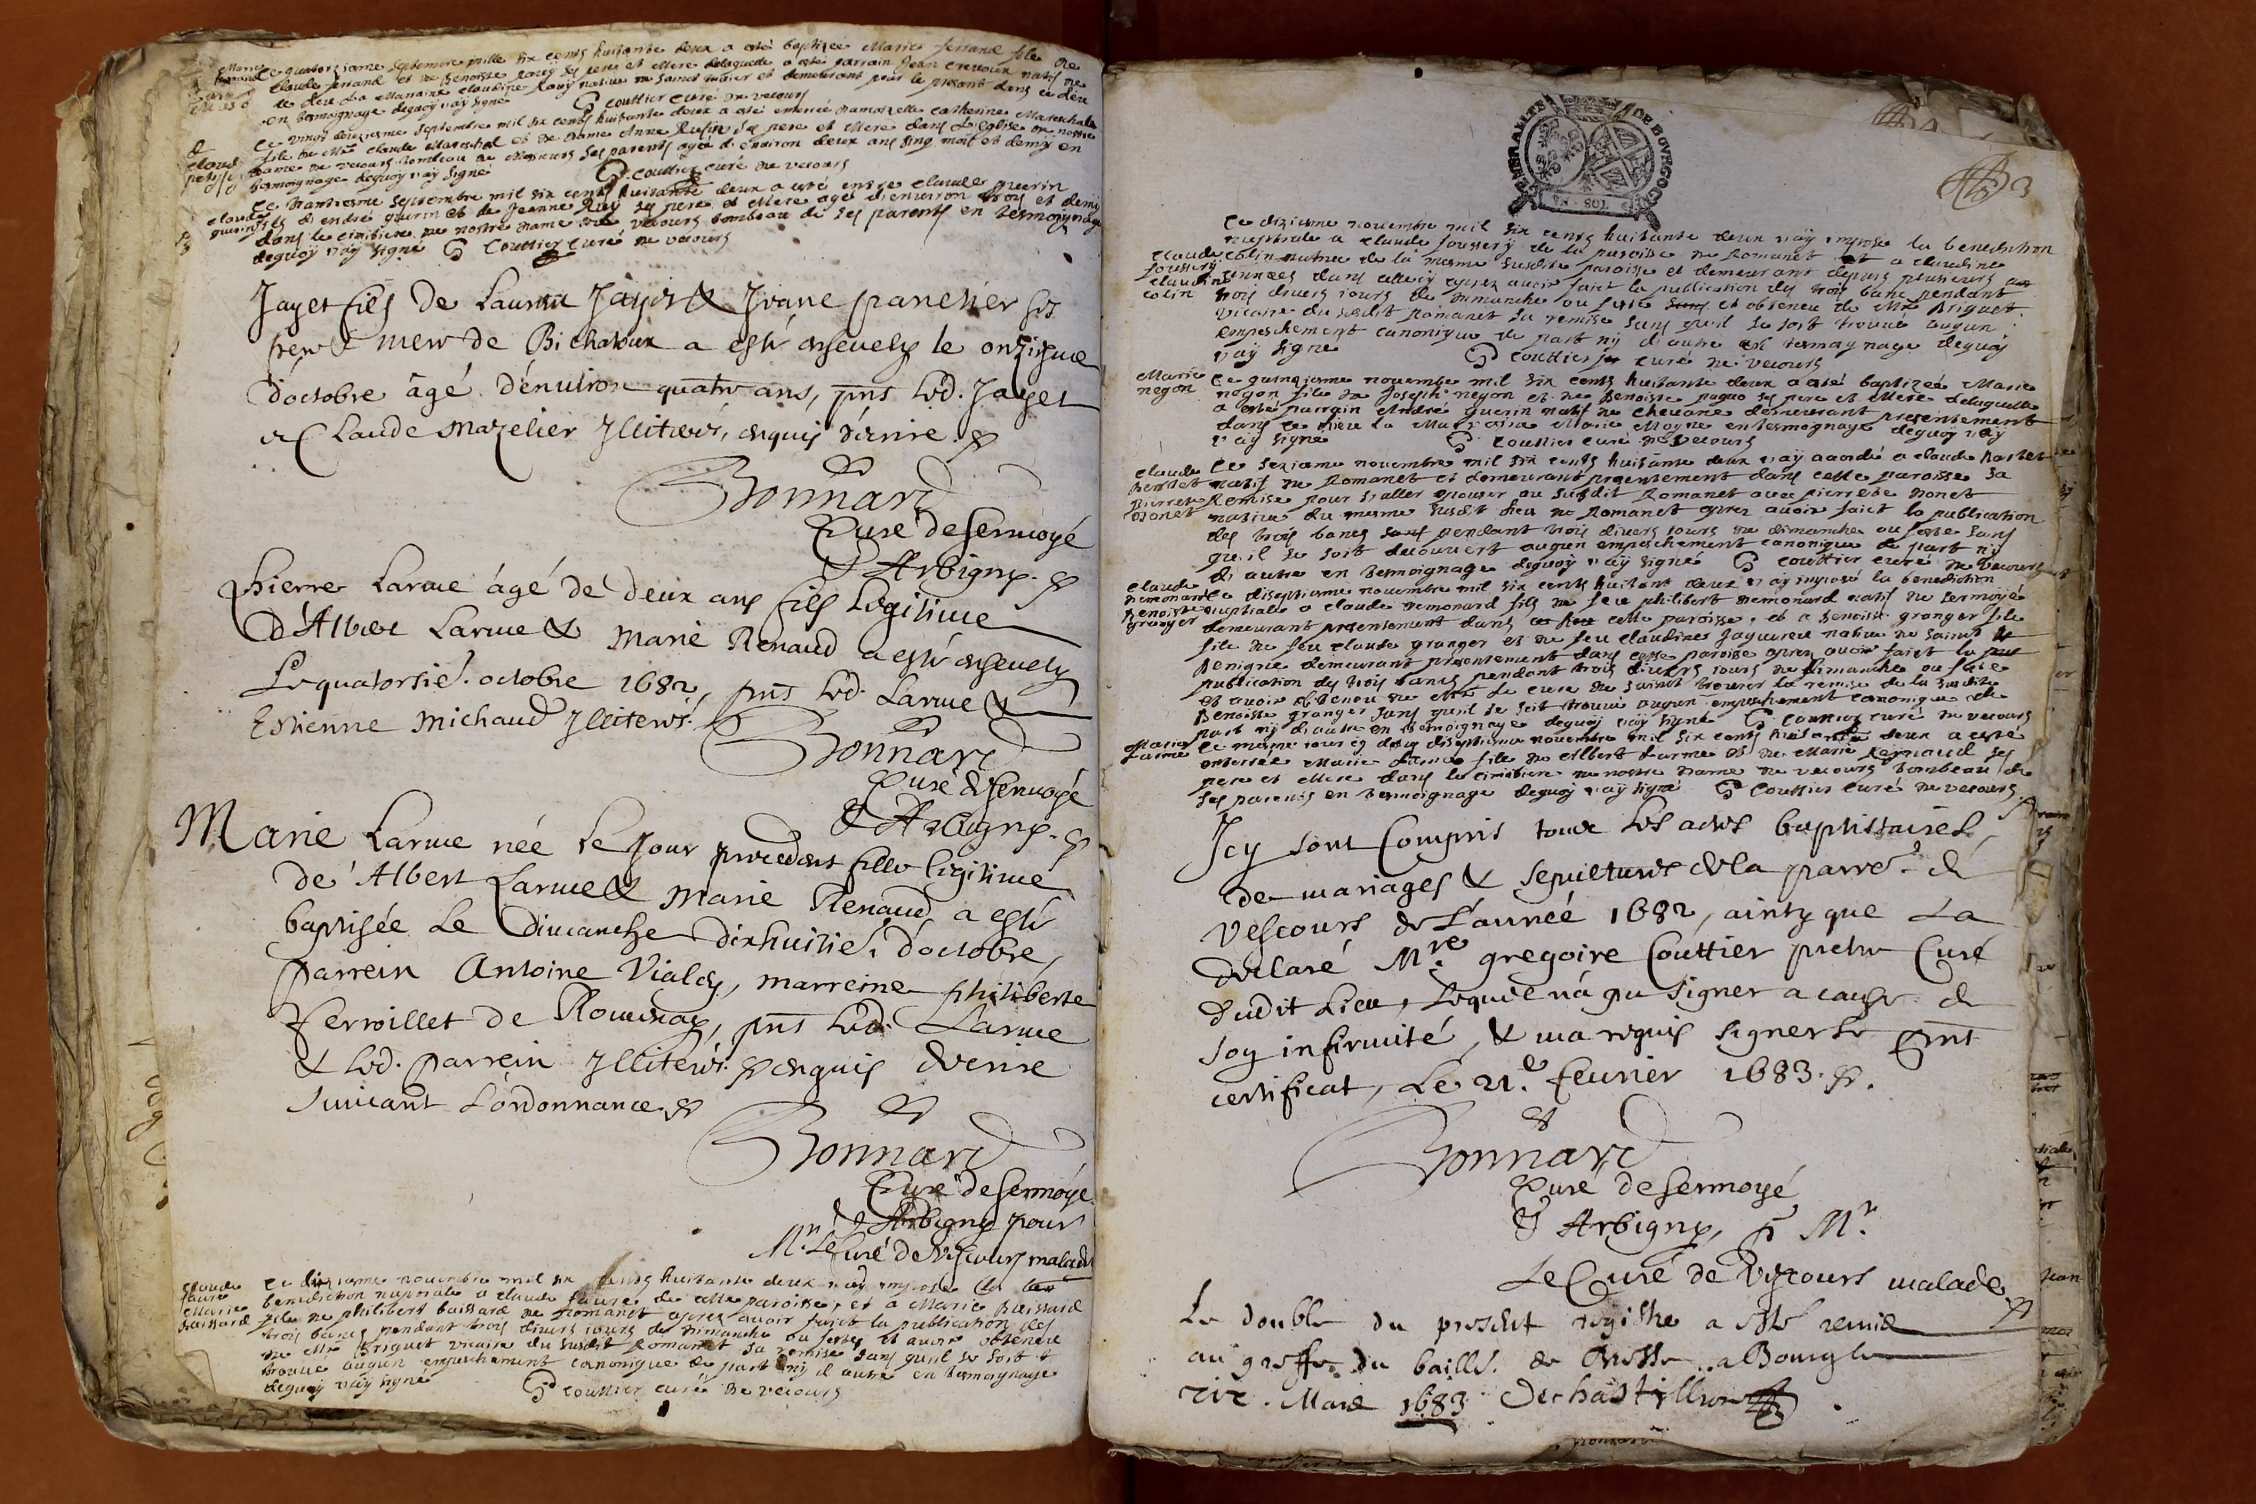 Ce quatorziesme septembre mille six cents huitante deux a esté baptizée Marie ferrand file de
Marie ferrand
Claude ferrand et de benoiste ses pere et Mere delaquelle a esté parrain Jean natif de
ce lieu La Marraine claudine native de saint et demeurant pour le present dans ce lieu
en tesmoignage dequoÿ j'aÿ signé couttier curé de vecours
Ce vingt deuxiesme septembre mil six cents huitante deux a esté damoiselle catherine Mareschal
file de Mre claude Mareschal et de dame Anne ses pere et Mere dans L'eglise de nostre
dame de vecours tombeau de ses parents agée d'environ deux ans sing mois et demÿ en
tesmoignage dequoÿ j'aÿ signé couttier curé de vecours
Ce septembre mil six cents huitante deux a esté claude guerin
claude guerin
fils d'andre guerin et de Jeanne ses pere et Mere agé d'environ trois et demi
dans le cimitiere de nostre dame de vecours tombeau de ses parents en tesmoignage
dequoÿ j'aÿ signé couttier curé de vecours
Jayet fils de Jayet & panetier ses
pere & mere de Bichatoux a esté ensevely le onziesme
d'octobre âgé d'environ quatre ans, pnts led. Jayet
& Claude mazelier Illiterés, enquis d'ecrire
Bonnard
Curé de sermoyé
& Arbigny
Pierre Larue âgé de deux ans fils Legitime
d'Albert Larue & Marie Renaud a esté ensevely
Le quatorsié. octobre 1682, pnts led. Larue &
Estienne michaud Illiterés.
Bonnard
Curé de sermoyé
& Arbigny
Marie Larue née le Jour precedent fille legitime
de Albert Larue & Marie Renaud a esté
baptisée Le Dimanche dixhuitié. d'octobre,
parrein Antoine Vialey, marreine philiberte
ferroillet de Romenay, pnts led. Larue
& led. parrein Illiterés enquis d'ecrire
suivant L'ordonnance
Bonnard
Curé de sermoyé
& Arbigny pour
Mr. Le Curé de Vescours malade
Ce diziesme novembre mil six cents huitante deux j'aÿ imposé la
claude faure
Marie buissard
benediction nuptiale a claude faure de cette paroisse, et a Marie buissard
file de philibert buissard de Romanet apres avoir faict la publication des
trois bancs pendant trois divers iours de dimanche ou festes et avoir obteneu
de Mre briguet vicaire du susdit Romanet sa remise sans quil se soit
trouve augun empeschement canonique de part ny d'autre en tesmoignage
dequoÿ j'aÿ signé couttier curé de vecours
GENERALITE DE BOURGOGNE
VN SOL
3
Ce diziesme novembre mil six cents huitante deux j'aÿ imposé la benediction
nuptiale a claude foussery de la paroisse de Romanet et a claudine
claude foussery
claudine colin
colin native de la mesme susdite paroisse et demeurant depuis plusieurs
années dans celle cÿ apres avoir faict la publication des trois banc pendant
trois divers iours de dimanche ou feste et obteneu de Mre Briguet
vicaire du susdit Romanet sa remise sans quil se soit trouvé augun
empeschement canonique de part nÿ d'autre en tesmoignage dequoÿ
j'aÿ signé couttier curé de vecours
Marie negon
Ce quinziesme novembre mil six cents huitante deux a esté baptizée Marie
negon file de Joseph negon et de benoiste ses pere et Mere delaquelle
a esté parrain André guerin natif de demeurant presentement
dans ce lieu La Marraine Marie Moyne en tesmoignage dequoÿ j'aÿ
j'aÿ signé couttier curé de vecours
Ce seziesme novembre mil six cents huitante deux j'aÿ acordé a claude
natif de Romanet et demeurant presentement dans cette paroisse sa
Remise pour s'aller epouser au susdit Romanet avec pierrete bonet
native du mesme susdit lieu de Romanet apres avoir faict la publication
des trois bancs pendant trois divers iours de dimanche ou feste sans
qu'il se soit decouvert augun empeschement canonique de part nÿ
d'autre en tesmoignage dequoÿ j'aÿ signé couttier curé de vecours
claude demonard
benoiste granger
Ce diseptiesme novembre mil six cents huitante deux j'aÿ imposé la benediction
nuptiale a claude demonard fils de feu philibert demonard natif de sermoyé
demeurant presentement dans cette paroisse, et a benoiste granger file
file de feu claude granger et de feu claudine native de saint
benigne demeurant presentement dans cette paroisse apres avoir faict la
publication des trois bancs pendant trois divers iours de dimanche ou feste
et avoir obteneu de Mre le cure de saint la remise de la susdite
benoiste granger sans quil se soit trouvé augun empeschement canonique de
part nÿ d'autre en tesmoignage dequoÿ j'aÿ signé couttier curé de vecours
Marie Larue
Ce mesme iour diseptiesme novembre mil six cents huitante deux a esté
enterrée Marie Larue file de Albert Larue et de Marie Regnaud ses
pere et Mere dans le cimitiere de nostre dame de vecours tombeau de
ses parents en tesmoignage dequoÿ j'aÿ signé couttier curé de vecours
Icy sont Compris tous les actes baptistaires,
de mariages & sepultures de la parre. de
Vescours de L'année 1682, ainsy que La
declaré Mre gregoire Couttier pretre Curé
dudit Lieu, Lequel n'a pu signer a cause de
son infirmité, & m'a requis signer le pnt
certificat, Le 21e. fevrier 1683.
Bonnard
Curé de sermoyé
& Arbigny, pr Mr.
Le Curé de Vescours malade
Le double du present registre a esté remis
au greffe du baill. de Bresse a Bourg le
Mars 1683 Dechastillon